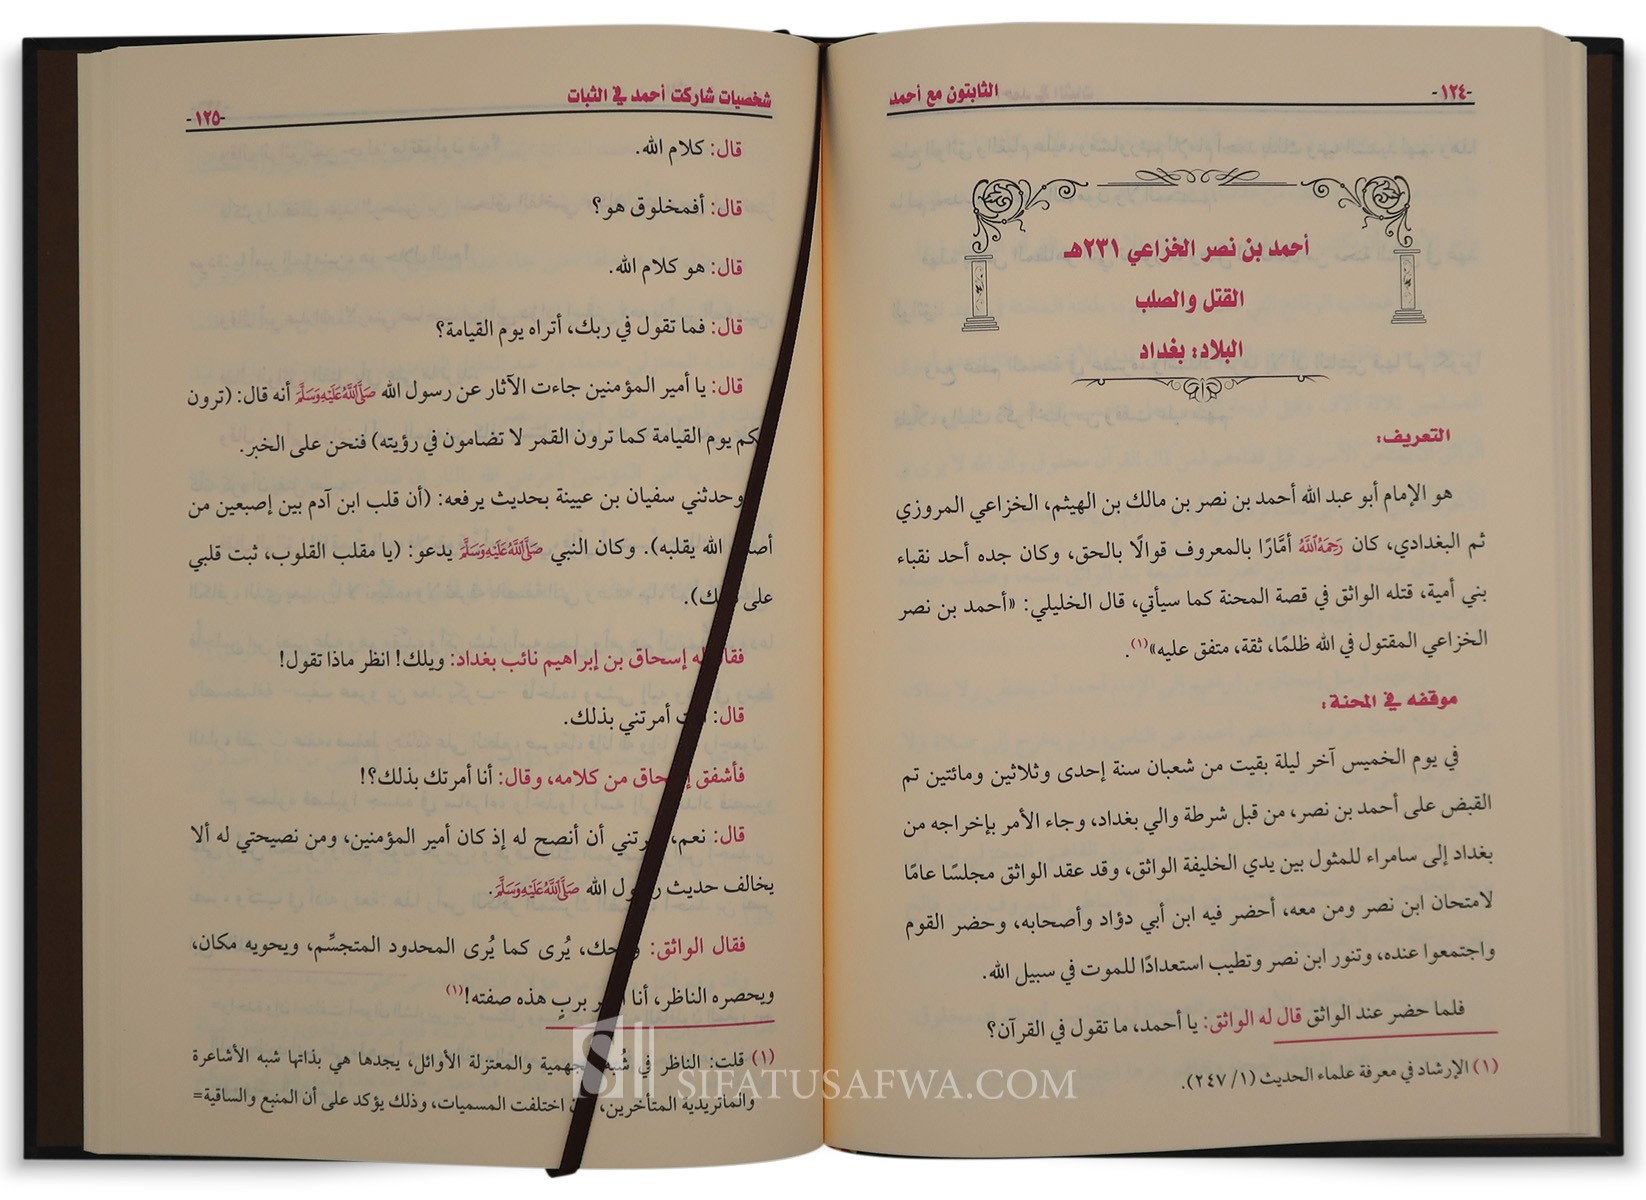 -١٢٤-
الثابتون مع أحمد
أحمد بن نصر الخزاعي ٢٣١هـ
القتل والصلب
البلاد: بغداد
التعريف:
هو الإمام أبو عبد الله أحمد بن نصر بن مالك بن الهيثم، الخزاعي المروزي
ثم البغدادي، كان رَحِمَهُ ٱللَّهُ أمَّارًا بالمعروف قوالًا بالحق، وكان جده أحد نقباء
بني أمية، قتله الواثق في قصة المحنة كما سيأتي، قال الخليلي: «أحمد بن نصر
الخزاعي المقتول في الله ظلمًا، ثقة، متفق عليه»(١).
موقفه في المحنة:
في يوم الخميس آخر ليلة بقيت من شعبان سنة إحدى وثلاثين ومائتين تم
القبض على أحمد بن نصر، من قبل شرطة والي بغداد، وجاء الأمر بإخراجه من
بغداد إلى سامراء للمثول بين يدي الخليفة الواثق، وقد عقد الواثق مجلسًا عامًا
لامتحان ابن نصر ومن معه، أحضر فيه ابن أبي دؤاد وأصحابه، وحضر القوم
واجتمعوا عنده، وتنور ابن نصر وتطيب استعدادًا للموت في سبيل الله.
فلما حضر عند الواثق قال له الواثق: يا أحمد، ما تقول في القرآن؟
(١) الإرشاد في معرفة علماء الحديث (١/ ٢٤٧).
شخصيات شاركت أحمد في الثبات
-١٢٥-
قال: كلام الله.
قال: أفمخلوق هو؟
قال: هو كلام الله.
قال: فما تقول في ربك، أتراه يوم القيامة؟
قال: يا أمير المؤمنين جاءت الآثار عن رسول الله صَلَّى ٱللَّهُ عَلَيْهِ وَسَلَّمَ أنه قال: (ترون
يوم القيامة كما ترون القمر لا تضامون في رؤيته) فنحن على الخبر.
وحدثني سفيان بن عيينة بحديث يرفعه: (أن قلب ابن آدم بين إصبعين من
الله يقلبه). وكان النبي صَلَّى ٱللَّهُ عَلَيْهِ وَسَلَّمَ يدعو: (يا مقلب القلوب، ثبت قلبي
على).
إسحاق بن إبراهيم نائب بغداد: ويلك! انظر ماذا تقول!
قال: أمرتني بذلك.
فأشفق من كلامه، وقال: أنا أمرتك بذلك؟!
قال: نعم، أن أنصح له إذ كان أمير المؤمنين، ومن نصيحتي له ألا
يخالف حديث رسول الله صَلَّى ٱللَّهُ عَلَيْهِ وَسَلَّمَ.
فقال الواثق: يُرى كما يُرى المحدود المتجسِّم، ويحويه مكان،
ويحصره الناظر، أنا بربٍ هذه صفته!(١)
(١) قلت: الناظر في والمعتزلة الأوائل، يجدها هي بذاتها شبه الأشاعرة
والماتريدية المتأخرين، اختلفت المسميات، وذلك يؤكد على أن المنبع والساقية=
SIFATUSAFWA.COM